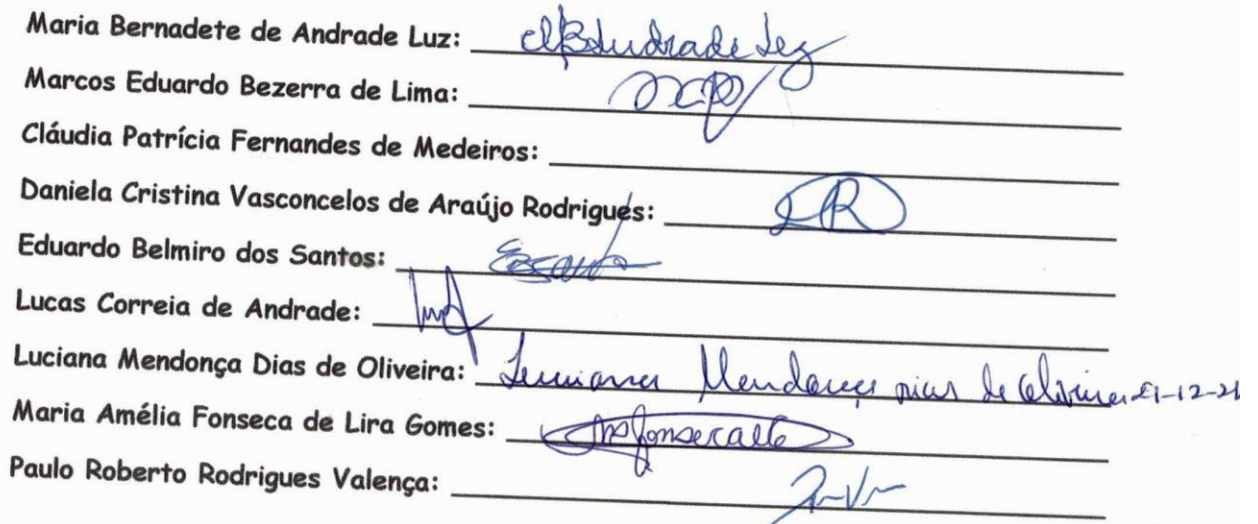 Maria Bernadete de Andrade Luz:
Marcos Eduardo Bezerra de Lima:
Cláudia Patrícia Fernandes de Medeiros:
Daniela Cristina Vasconcelos de Araújo Rodrigues:
Eduardo Belmiro dos Santos:
Lucas Correia de Andrade:
Luciana Mendonça Dias de Oliveira: Luciana Mendonça Dias de Oliveira
Maria Amélia Fonseca de Lira Gomes:
Paulo Roberto Rodrigues Valença: